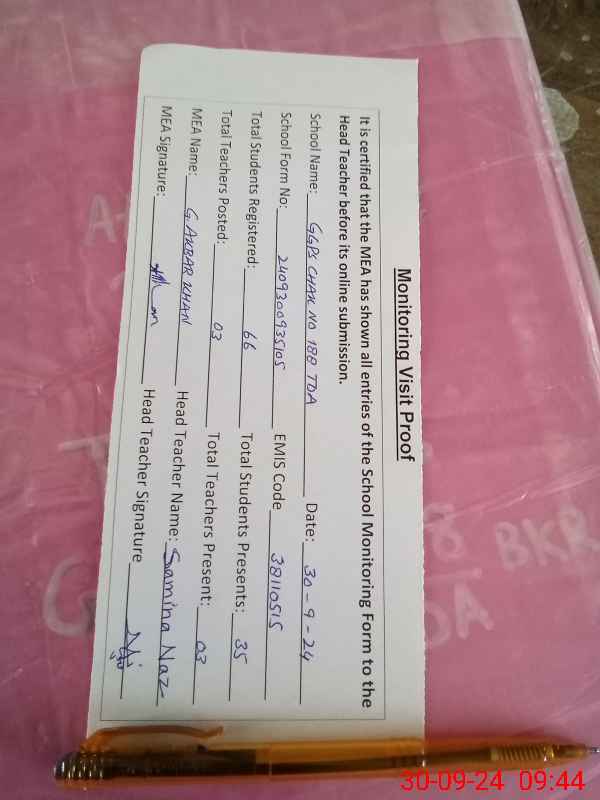 Monitoring Visit Proof
It is certified that the MEA has shown all entries of the School Monitoring Form to the
Head Teacher before its online submission.
School Name: GGPS CHAK NO 188 TDA Date: 30-9-24
School Form No: 2409300935105 EMIS Code 38110515
Total Students Registered: 66 Total Students Presents: 35
Total Teachers Posted: 03 Total Teachers Present: 03
MEA Name: G. AKBAR KHAN Head Teacher Name: Samina Naz
MEA Signature: Head Teacher Signature
8 BKR
DA
30-09-24 09:44